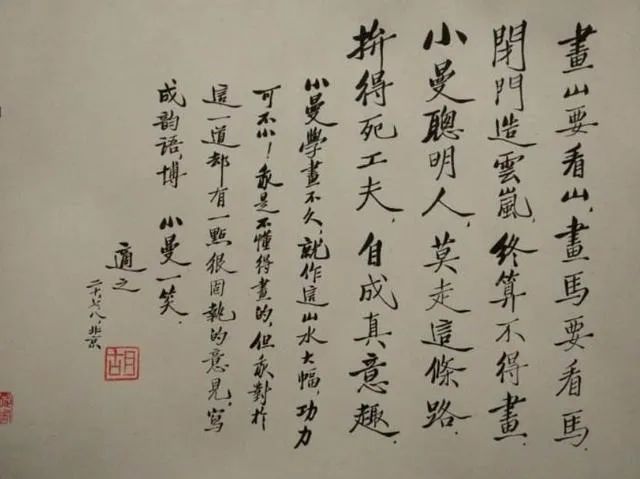 畫山要看山，畫馬要看馬。
閉門造雲嵐，終算不得畫。
小曼聰明人，莫走這條路。
拚得死工夫，自成真意趣。
小曼學畫不久，就作這山水大幅，功力
可不小！我是不懂得畫的，但我對於
這一道却有一點很固執的意見，寫
成韵語，博 小曼一笑。
適之
二十，七，八，北京
胡